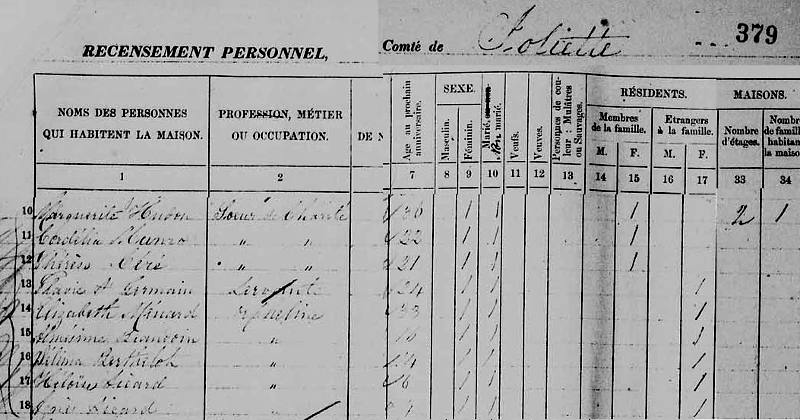 RECENSEMENT PERSONNEL, Comté de Joliette 379
NOMS DES PERSONNES QUI HABITENT LA MAISON.
PROFESSION, MÉTIER OU OCCUPATION.
DE N
Age au prochain anniversaire.
SEXE.
Masculin.
Féminin.
Marié, marié.
Veufs.
Veuves.
Personnes de couleur : Mulâtres ou Sauvages.
RÉSIDENTS.
Membres de la famille.
M. F.
Etrangers à la famille.
M. F.
MAISONS.
Nombre d'étages.
Nomb de famil habitan la maiso
1 2 7 8 9 10 11 12 13 14 15 16 17 33 34
10 Marguerite Hudon Soeur de Charité 36 1 1 1 2 1
11 Cordélia Munro " " 22 1 1 1
12 Thérèse " " 21 1 1 1
13 Flavie St Germain 24 1 1 1
14 Elizabeth Ménard Orpheline 33 1 1 1
15 " 1 1 1
16 Berthelot " 1 1 1
17 Héloïse Picard " 1 1 1
18 Picard " 1 1 1